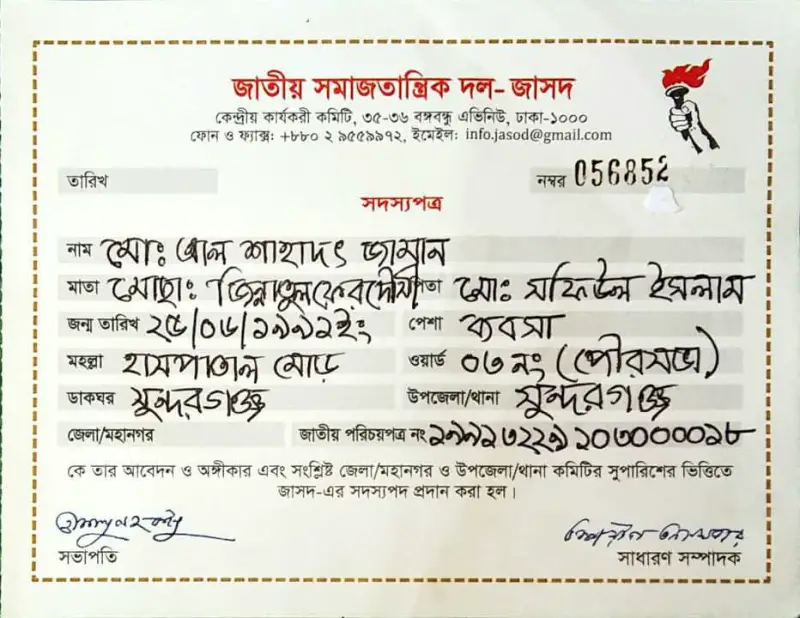 জাতীয় সমাজতান্ত্রিক দল- জাসদ
কেন্দ্রীয় কার্যকরী কমিটি, ৩৫-৩৬ বঙ্গবন্ধু এভিনিউ, ঢাকা-১০০০
ফোন ও ফ্যাক্স: +৮৮০ ২ ৯৫৫৯৯৭২, ইমেইল: info.jasod@gmail.com
তারিখ নম্বর 056852
সদস্যপত্র
নাম মোঃ আল শাহাদৎ জামান
মাতা মোছাঃ পিতা মোঃ সফিউল ইসলাম
জন্ম তারিখ ২৫/০৬/১৯৯১ইং পেশা ব্যবসা
মহল্লা হাসপাতাল মোড় ওয়ার্ড ০৩ নং (পৌরসভা)
ডাকঘর সুন্দরগঞ্জ উপজেলা/থানা সুন্দরগঞ্জ
জেলা/মহানগর জাতীয় পরিচয়পত্র নং
কে তার আবেদন ও অঙ্গীকার এবং সংশ্লিষ্ট জেলা/মহানগর ও উপজেলা/থানা কমিটির সুপারিশের ভিত্তিতে
জাসদ-এর সদস্যপদ প্রদান করা হল।
সভাপতি সাধারণ সম্পাদক